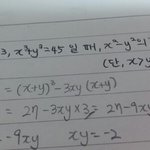 3, x³+y³=45 일 때, x²-y²의
(단, x>y
= (x+y)³-3xy(x+y)
= 27-3xy×3= 27-9xy
-9xy xy=-2